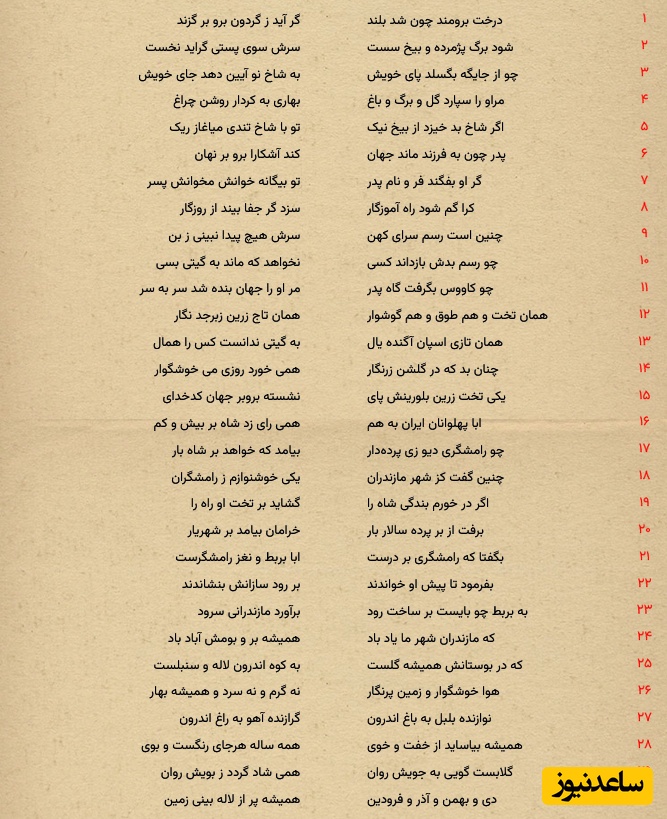 ۱ درخت برومند چون شد بلند گر آید ز گردون برو بر گزند
۲ شود برگ پژمرده و بیخ سست سرش سوی پستی گراید نخست
۳ چو از جایگه بگسلد پای خویش به شاخ نو آیین دهد جای خویش
۴ مراو را سپارد گل و برگ و باغ بهاری به کردار روشن چراغ
۵ اگر شاخ بد خیزد از بیخ نیک تو با شاخ تندی میاغاز ریک
۶ پدر چون به فرزند ماند جهان کند آشکارا برو بر نهان
۷ گر او بفگند فر و نام پدر تو بیگانه خوانش مخوانش پسر
۸ کرا گم شود راه آموزگار سزد گر جفا بیند از روزگار
۹ چنین است رسم سرای کهن سرش هیچ پیدا نبینی ز بن
۱۰ چو رسم بدش بازداند کسی نخواهد که ماند به گیتی بسی
۱۱ چو کاووس بگرفت گاه پدر مر او را جهان بنده شد سر به سر
۱۲ همان تخت و هم طوق و هم گوشوار همان تاج زرین زبرجد نگار
۱۳ همان تازی اسپان آگنده یال به گیتی ندانست کس را همال
۱۴ چنان بد که در گلشن زرنگار همی خورد روزی می خوشگوار
۱۵ یکی تخت زرین بلورینش پای نشسته بروبر جهان کدخدای
۱۶ ابا پهلوانان ایران به هم همی رای زد شاه بر بیش و کم
۱۷ چو رامشگری دیو زی پرده‌دار بیامد که خواهد بر شاه بار
۱۸ چنین گفت کز شهر مازندران یکی خوشنوازم ز رامشگران
۱۹ اگر در خورم بندگی شاه را گشاید بر تخت او راه را
۲۰ برفت از بر پرده سالار بار خرامان بیامد بر شهریار
۲۱ بگفتا که رامشگری بر درست ابا بربط و نغز رامشگرست
۲۲ بفرمود تا پیش او خواندند بر رود سازانش بنشاندند
۲۳ به بربط چو بایست بر ساخت رود برآورد مازندرانی سرود
۲۴ که مازندران شهر ما یاد باد همیشه بر و بومش آباد باد
۲۵ که در بوستانش همیشه گلست به کوه اندرون لاله و سنبلست
۲۶ هوا خوشگوار و زمین پرنگار نه گرم و نه سرد و همیشه بهار
۲۷ نوازنده بلبل به باغ اندرون گرازنده آهو به راغ اندرون
۲۸ همیشه بیاساید از خفت و خوی همه ساله هرجای رنگست و بوی
گلابست گویی به جویش روان همی شاد گردد ز بویش روان
دی و بهمن و آذر و فرودین همیشه پر از لاله بینی زمین
ساعدنیوز